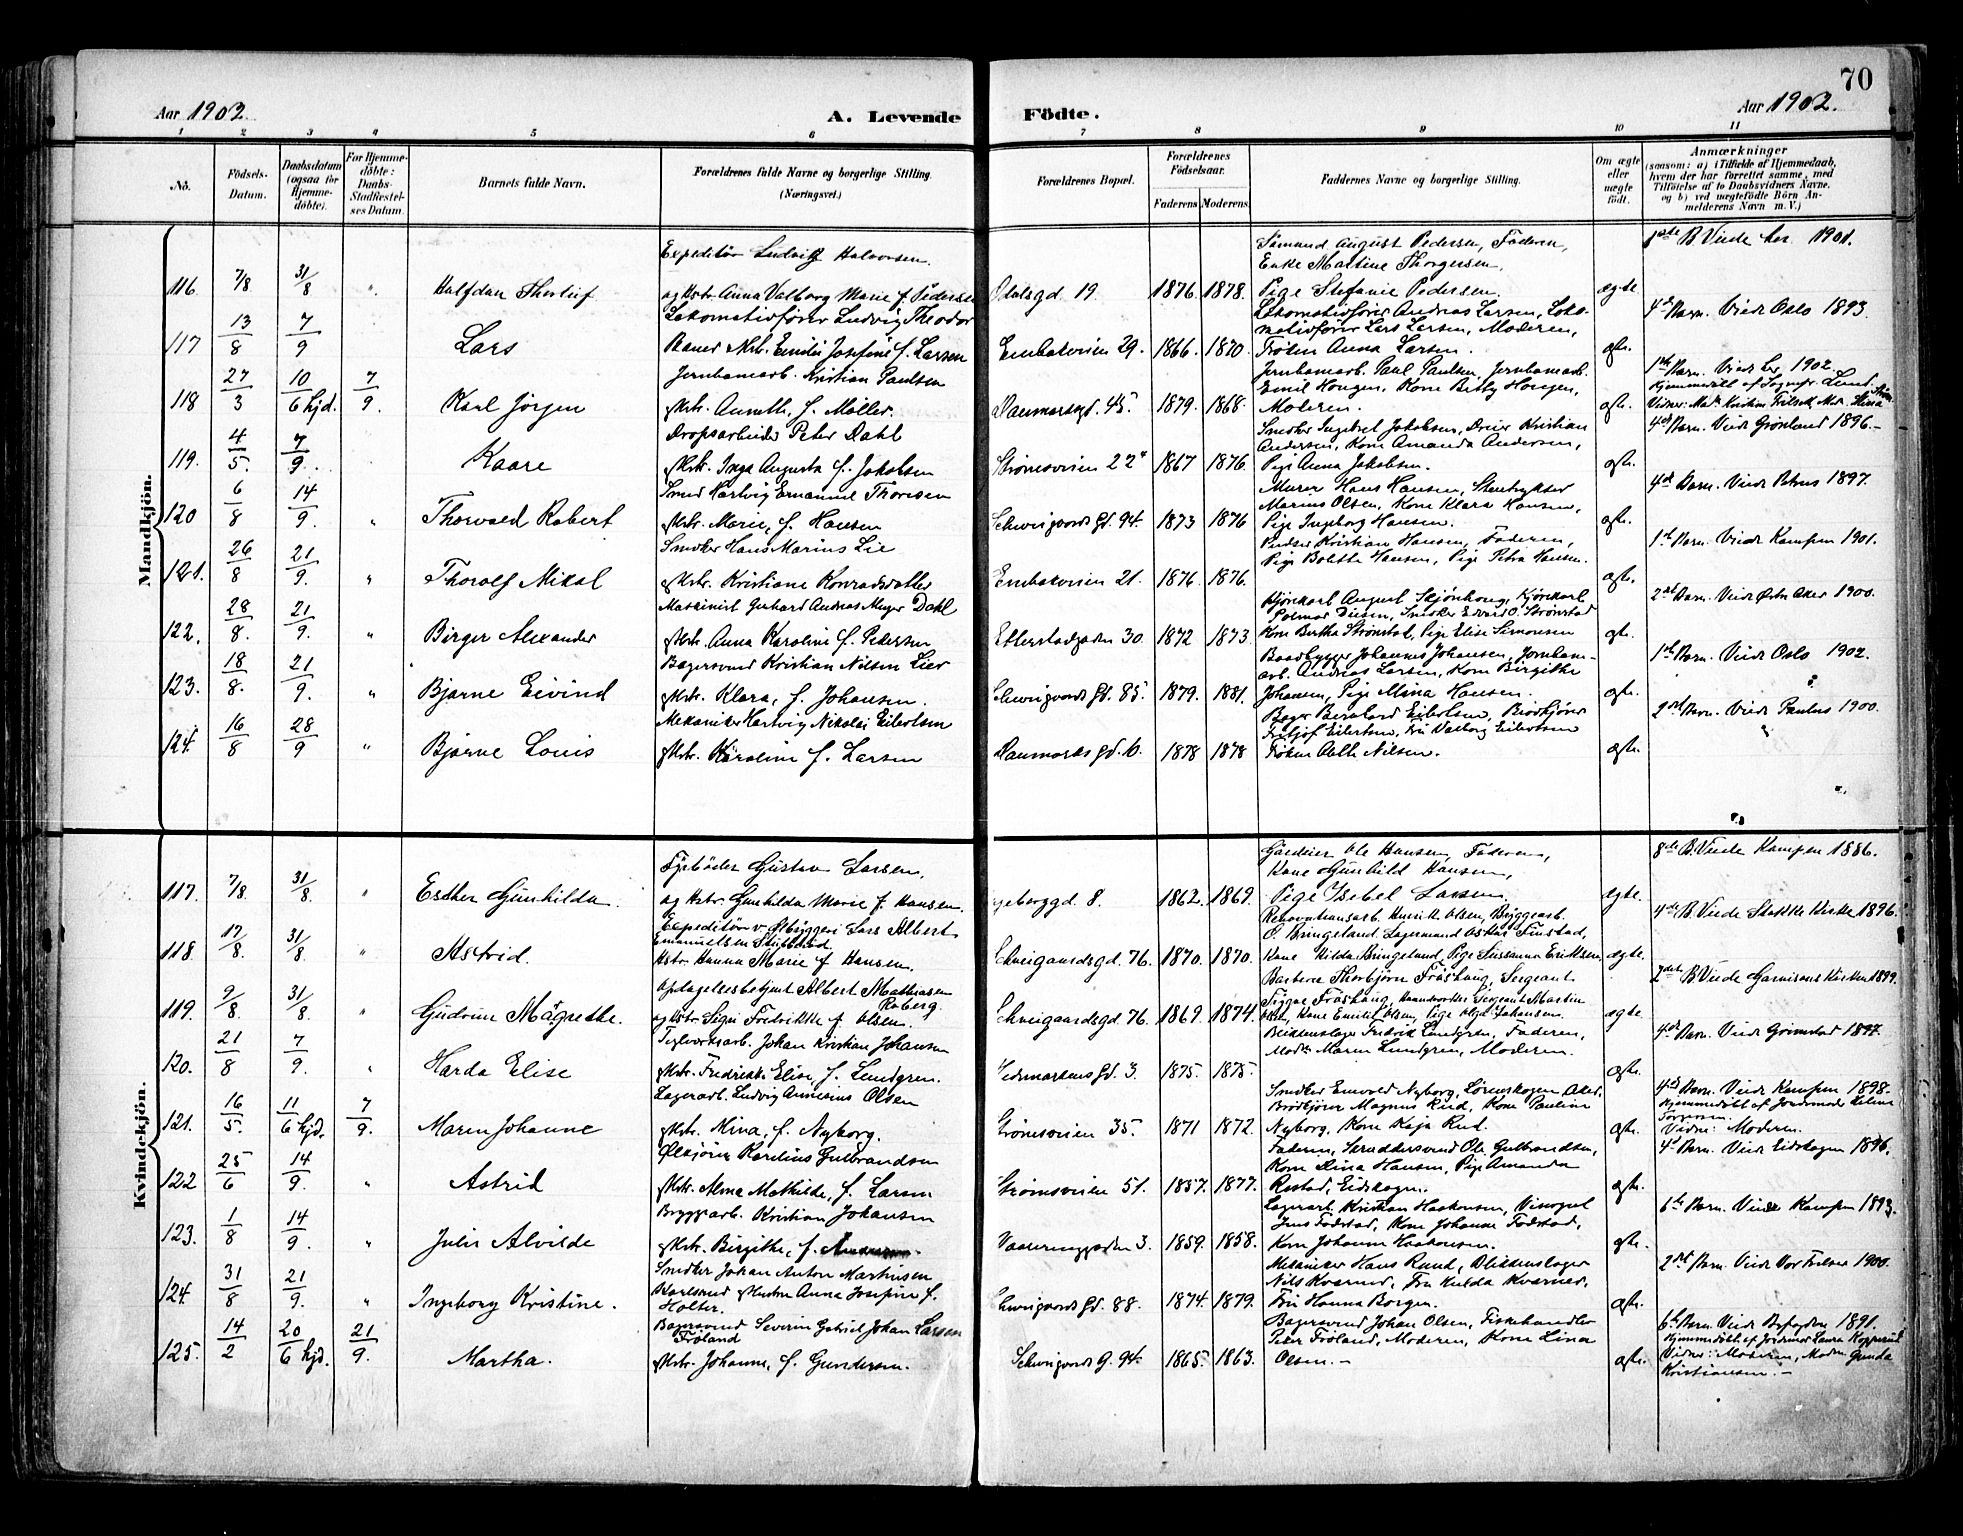 70
Aar 1902.
A. Levende
Födte.
Aar 1902.
1 2 3 4 5 6 7 8 9 10 11
No.
Födsels-Datum.
Daabsdatum (ogsaa for Hjemme-döbte).
For Hjemme-döbte: Daabs-Stadfæstel-ses Datum.
Barnets fulde Navn.
Forældrenes fulde Navne og borgerlige Stilling. (Næringsvei.)
Forældrenes Bopæl.
Forældrenes Födselsaar.
Faderens Moderens
Faddernes Navne og borgerlige Stilling.
Om ægte eller uægte födt.
Anmærkninger
(saasom: a) i Tilfælde af Hjemmedaab, hvem der har forrettet samme, med Tilföielse af to Daabsvidners Navne, og b) ved uægtefödte Börn An-melderens Navn m. V.)
Mandkjön.
116. 7/8 31/8 " Halfdan Thorleif
Expeditör Ludvig Halvorsen
og Hstr. Anna Valborg Marie f. Pedersen
Odalsgd. 19. 1876. 1878.
August Pedersen, Faderen,
Enke Martine Thorgersen,
Pige Stefanie Pedersen.
ægte
1ste B. Viede her 1901.
117 13/8 7/9 Lars
Lokomotivförer Ludvig Theodor
Hstr. Emilie Josefine f. Larsen
Enebakveien 29. 1866. 1870.
Lokomotivförer Andreas Larsen, Loko-
motivförer Lars Larsen, Moderen,
Fröken Anna Larsen.
ægte.
4de Barn. Viede Oslo 1893.
118 27/3 10/6 hjd. 7/9. Karl Jörgen
Jernbanearb. Kristian Paulsen
Hstr. Anneth, f. Möller.
Danmarksgd. 45. 1879. 1868.
Jernbanearb. Paul Paulsen, Jernbanearb.
Emil Hougen, Kone Betty Hougen,
Moderen.
ægte.
1ste Barn. Viede her 1902.
Hjemmedöbt af Sognepr. Lund.
119. 4/5. 7/9. Kaare
Dropsarbeider Peter Dahl
Hstr. Inga Augusta f. Jakobsen
Strömsveien 22 1867 1876.
Snedker Ingebret Jakobsen, Dreier Kristian
Andersen, Kone Amanda Andersen,
Pige Anna Jakobsen.
ægte.
4de Barn. Viede Grönland 1896.-
120 6/8 14/9. " Thorvald Robert
Smed Hartvig Emanuel Thoresen
Hstr. Marie, f. Hansen
Schweigaards Gd. 94. 1873 1876
Murer Hans Hansen, Stentrykker
Marius Olsen, Kone Klara Hansen,
Pige Ingeborg Hansen.
ægte.
4de Barn. Viede Petrus 1897.
121. 26/8 21/9. " Thorolf Mikal
Snedker Hans Marius Lie
Hstr. Kristiane Konradsdatter
Enebakveien 21. 1876. 1876.
Kristian Hansen, Faderen,
Pige Bolette Hansen, Pige Petra Hansen.
ægte.
1ste Barn. Viede Kampen 1901.
122. 28/8. 21/9. " Birger Alexander
Maskinist Gerhard Andreas Meyer Dahl
Hstr. Anna Karoline f. Pedersen
Etterstadgaden 30. 1872 1873
August Skjönhoug,
Snedker Edvard O. Strönstad
Kone Bertha Strönstad, Pige Elise Simonsen
ægte.
2det Barn. Viede Östre Aker 1900.
123. 18/8. 21/9. " Bjarne Eivind
Bagersvend Kristian Nilsen Lier
Hstr. Klara, f. Johansen.
Schweigaards Gd. 85. 1879. 1881.
Baadbygger Johannes Johansen, Jernbane-
arb. Andreas Larsen, Kone Birgithe
Johansen, Pige Mina Hansen.
ægte.
1ste Barn. Viede Oslo 1902.
124. 16/8 28/9 " Bjarne Louis
Mekaniker Hartvig Nikolai Eilertsen
Hstr. Karoline f. Larsen
Danmarks Gd. 10. 1878 1878
Bager Bernhard Eilertsen, Brödkjörer
Fritjof Eilertsen, Fru Valborg Eilertsen
Fröken Nilsen.
ægte.
2det Barn. Viede Paulus 1900.
Kvindekjön.
117. 7/8 31/8 " Esther Gunhilda.
Fyrböder Gustav Larsen,
og Hstr. Gunhilda Marie f. Hansen.
8. 1862. 1869.
Gardeier Ole Hansen, Faderen,
Kone Gunhild Hansen,
Pige Isabel Larsen.
ægte.
8de B. Viede Kampen 1886.
118. 17/8. 31/8 " Astrid.
Expeditör v. Ölbryggeri Lars Albert
Emanuelsen
Hstr. Hanna Marie f. Hansen.
Schweigaardsgd. 76. 1870. 1870.
Renovationsarb. Henrik Olsen, Bryggearb.
O. Bringeland, Lagermand Oskar Finstad,
Kone Hilda Bringeland, Pige Susanna Eriksen
ægte.
4de B. Viede Kirke 1896.
119. 9/8. 31/8. " Gudrun Margrethe.
Opdagelsesbetjent Albert Mathiasen
Roberg.
og Hstr. Signe Fredrikke f. Olsen.
Schweigaardsgd. 76. 1869. 1874.
Thorbjörn Fröshaug, Sergeant
Fröshaug, Sergeant Martin
Olsen, Kone Emilie Olsen, Pige Olga Johansen.
ægte
2det B. Viede Garnisons Kirken 1899.
120. 21/8 7/9. " Harda Elise
Teglverksarb. Johan Kristian Johansen
Hstr. Fredrikke Elise f. Lundgren.
Hedmarkens Gd. 3. 1875. 1875.
Blikkenslager Fredrik Lundgren, Faderen,
Madm. Maren Lundgren, Moderen.
ægte.
4de Barn. Viede Grimstad 1897.
121. 16/5. 11/6 hjd. 7/9. Maren Johanne
Lagerarb. Ludvig Annesius Olsen
Hstr. Mina, f. Nyborg.
Strömsveien 35. 1871 1872.
Snedker Nyborg, Lörenskogen Aker,
Brödkjörer Magnus Rud, Kone Pauline
Nyborg, Kone Kaja Rud.
ægte.
4de Barn. Viede Kampen 1898.
Hjemmedöbt af Jordemoder Helene
Vidne: Moderen.
122 25/6 14/9. " Astrid
Ölkjörer Karelius Gulbrandsen
Hstr. Alma Mathilde, f. Larsen
Strömsveien 51. 1857. 1877.
Faderen, Skræddersvend Ole Gulbrandsen,
Kone Lina Hansen, Pige Amanda
Rustad, Eidskogen.
ægte.
4de Barn. Viede Eidskogen 1896.
123. 1/8 14/9. " Julie Alvilde
Bryggearb. Kristian Johansen
Hstr. Birgithe, f.
Vaalerenggaden 3. 1859. 1858.
Lagerarb. Kristian Haakensen,
Jens Fodstad, Kone Johanne Fodstad,
Kone Johanne Haakensen.
ægte.
6te Barn. Viede Kampen 1893.
124. 31/8 21/9. " Ingeborg Kristine.
Snedker Johan Anton Martinsen
Karlsrud Hustru Anna Josefine f.
Holter.
Schweigaards Gd. 88. 1874. 1879.
Mekaniker Hans Rund, Blikkenslager
Nils Kværner, Fru Hulda Kværner,
Fru Hanna Borgen.
ægte.
2det Barn. Viede Vor Frelser 1900.
125. 14/2 20/6 hjd. 21/9. Martha.
Bagersvend Severin Gabriel Johan Larsen
Fröland
Hstr. Johanne, f. Gundersen.
Schweigaards G. 94. 1865. 1863.
Bagersvend Johan Olsen, Fiskehandler
Peter Fröland, Moderen, Kone Lina
Olsen.-
ægte.
6te Barn. Viede 1891.
Hjemmedöbt af Jordmor Laura
Vidne: Moderen, Madm. Gunda
Kristiansen.-